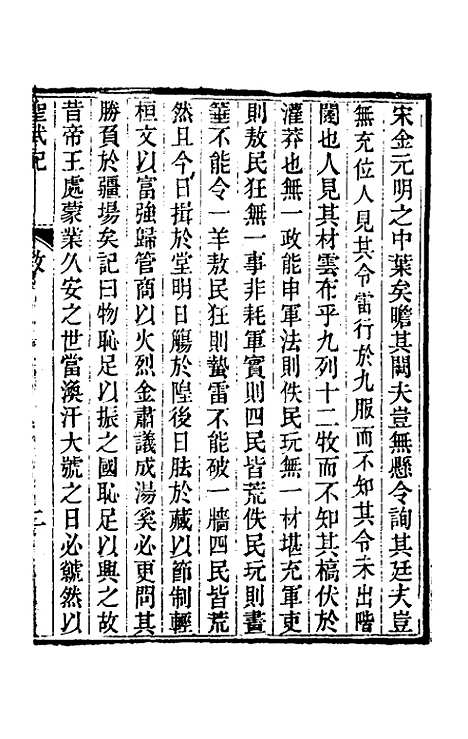 宋金元明之中葉矣瞻其闕夫豈無懸令詢其廷夫豈
無充位人見其令雷行於九服而不知其令未出階
闥也人見其材雲布乎九列十二牧而不知其槁伏於
灌莽也無一政能申軍法則佚民玩無一材堪充軍吏
則敖民狂無一事非耗軍實則四民皆荒佚民玩則畫
箠不能令一羊敖民狂則蟄雷不能破一牆四民皆荒
然且今日揖於堂明日觴於隍後日胠於藏以節制輕
桓文以富強歸管商以火烈金肅議成湯奚必更問其
勝負於疆場矣記曰物恥足以振之國恥足以興之故
昔帝王處蒙業久安之世當渙汗大號之日必虩然以
聖武記
敘
二